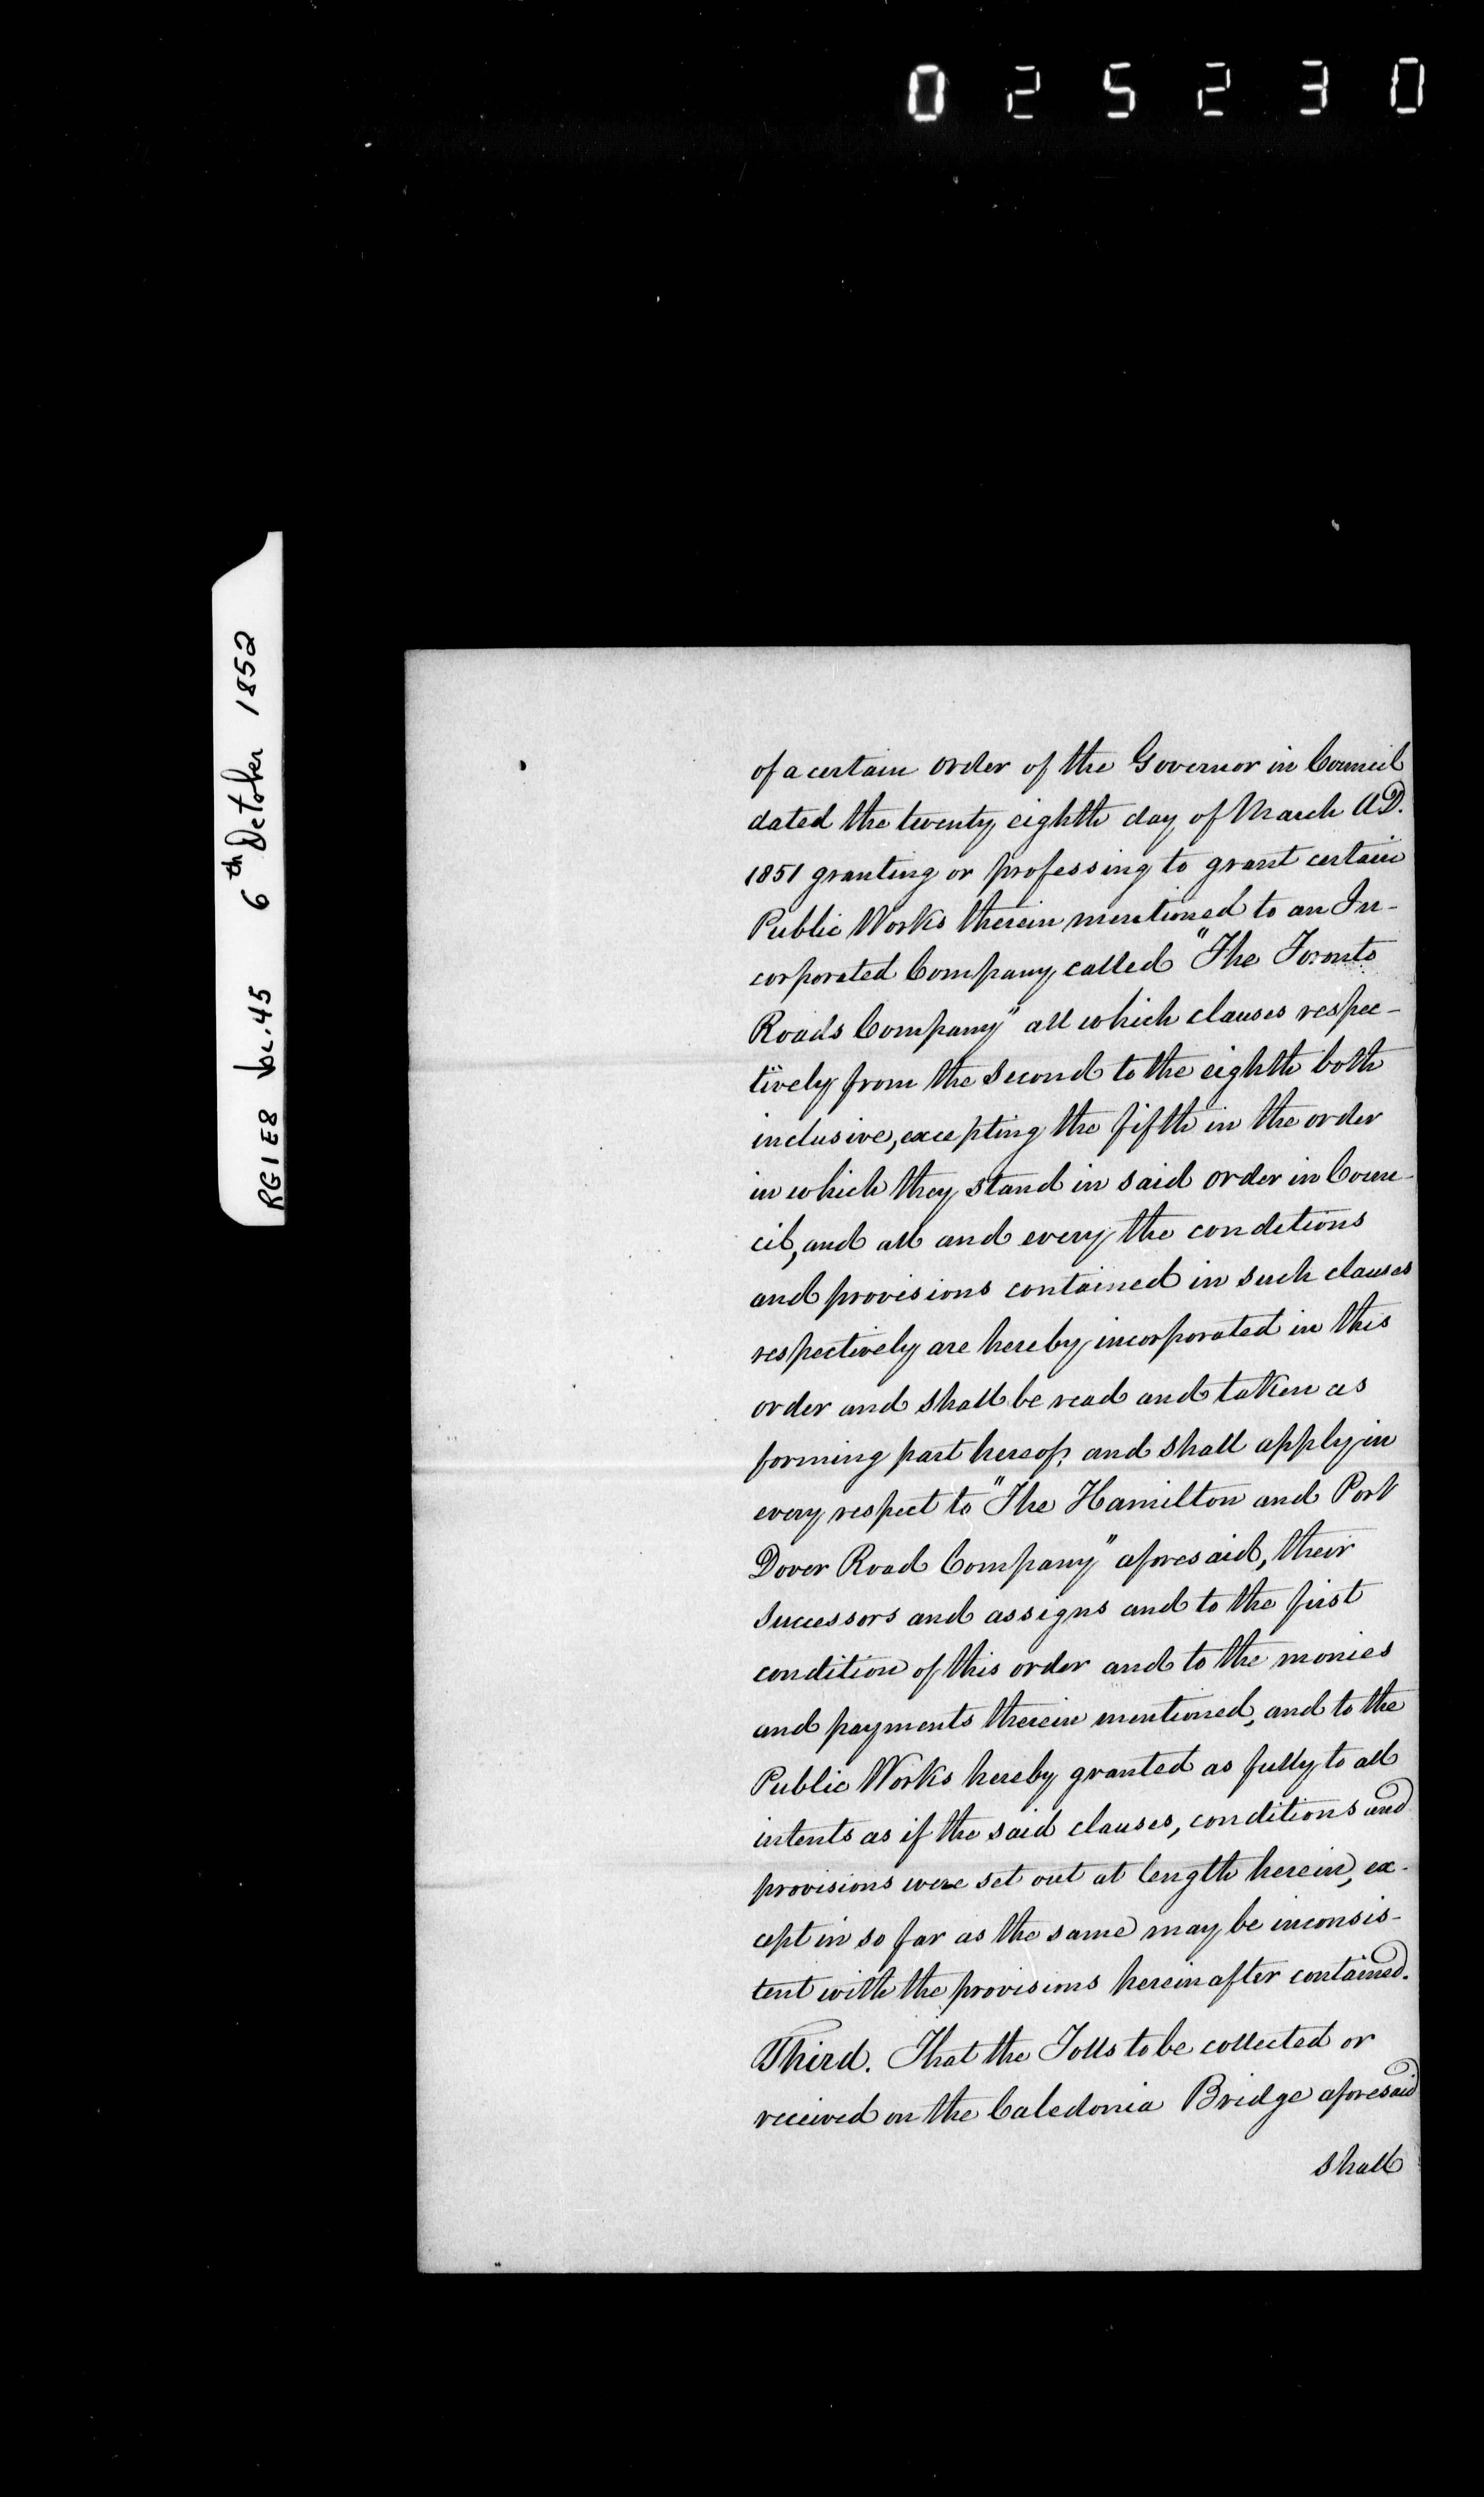 025230
RG1 E8 Vol. 45 6th October 1852
of a certain order of the Governor in Council
dated the twenty eighth day of March A.D.
1851 granting or professing to grant certain
Public Works therein mentioned to an In-
corporated Company called "The Toronto
Roads Company" all which clauses respec-
tively from the second to the eighth both
inclusive, excepting the fifth in the order
in which they stand in said order in Coun-
cil, and all and every the conditions
and provisions contained in such clauses
respectively are hereby incorporated in this
order and shall be read and taken as
forming part hereof, and shall apply in
every respect to "The Hamilton and Port
Dover Road Company" aforesaid, their
successors and assigns and to the first
condition of this order and to the monies
and payments therein mentioned, and to the
Public Works hereby granted as fully to all
intents as if the said clauses, conditions and
provisions were set out at length herein, ex-
cept in so far as the same may be inconsis-
tent with the provisions herein after contained.
Third. That the Tolls to be collected or
received on the Caledonia Bridge aforesaid
shall